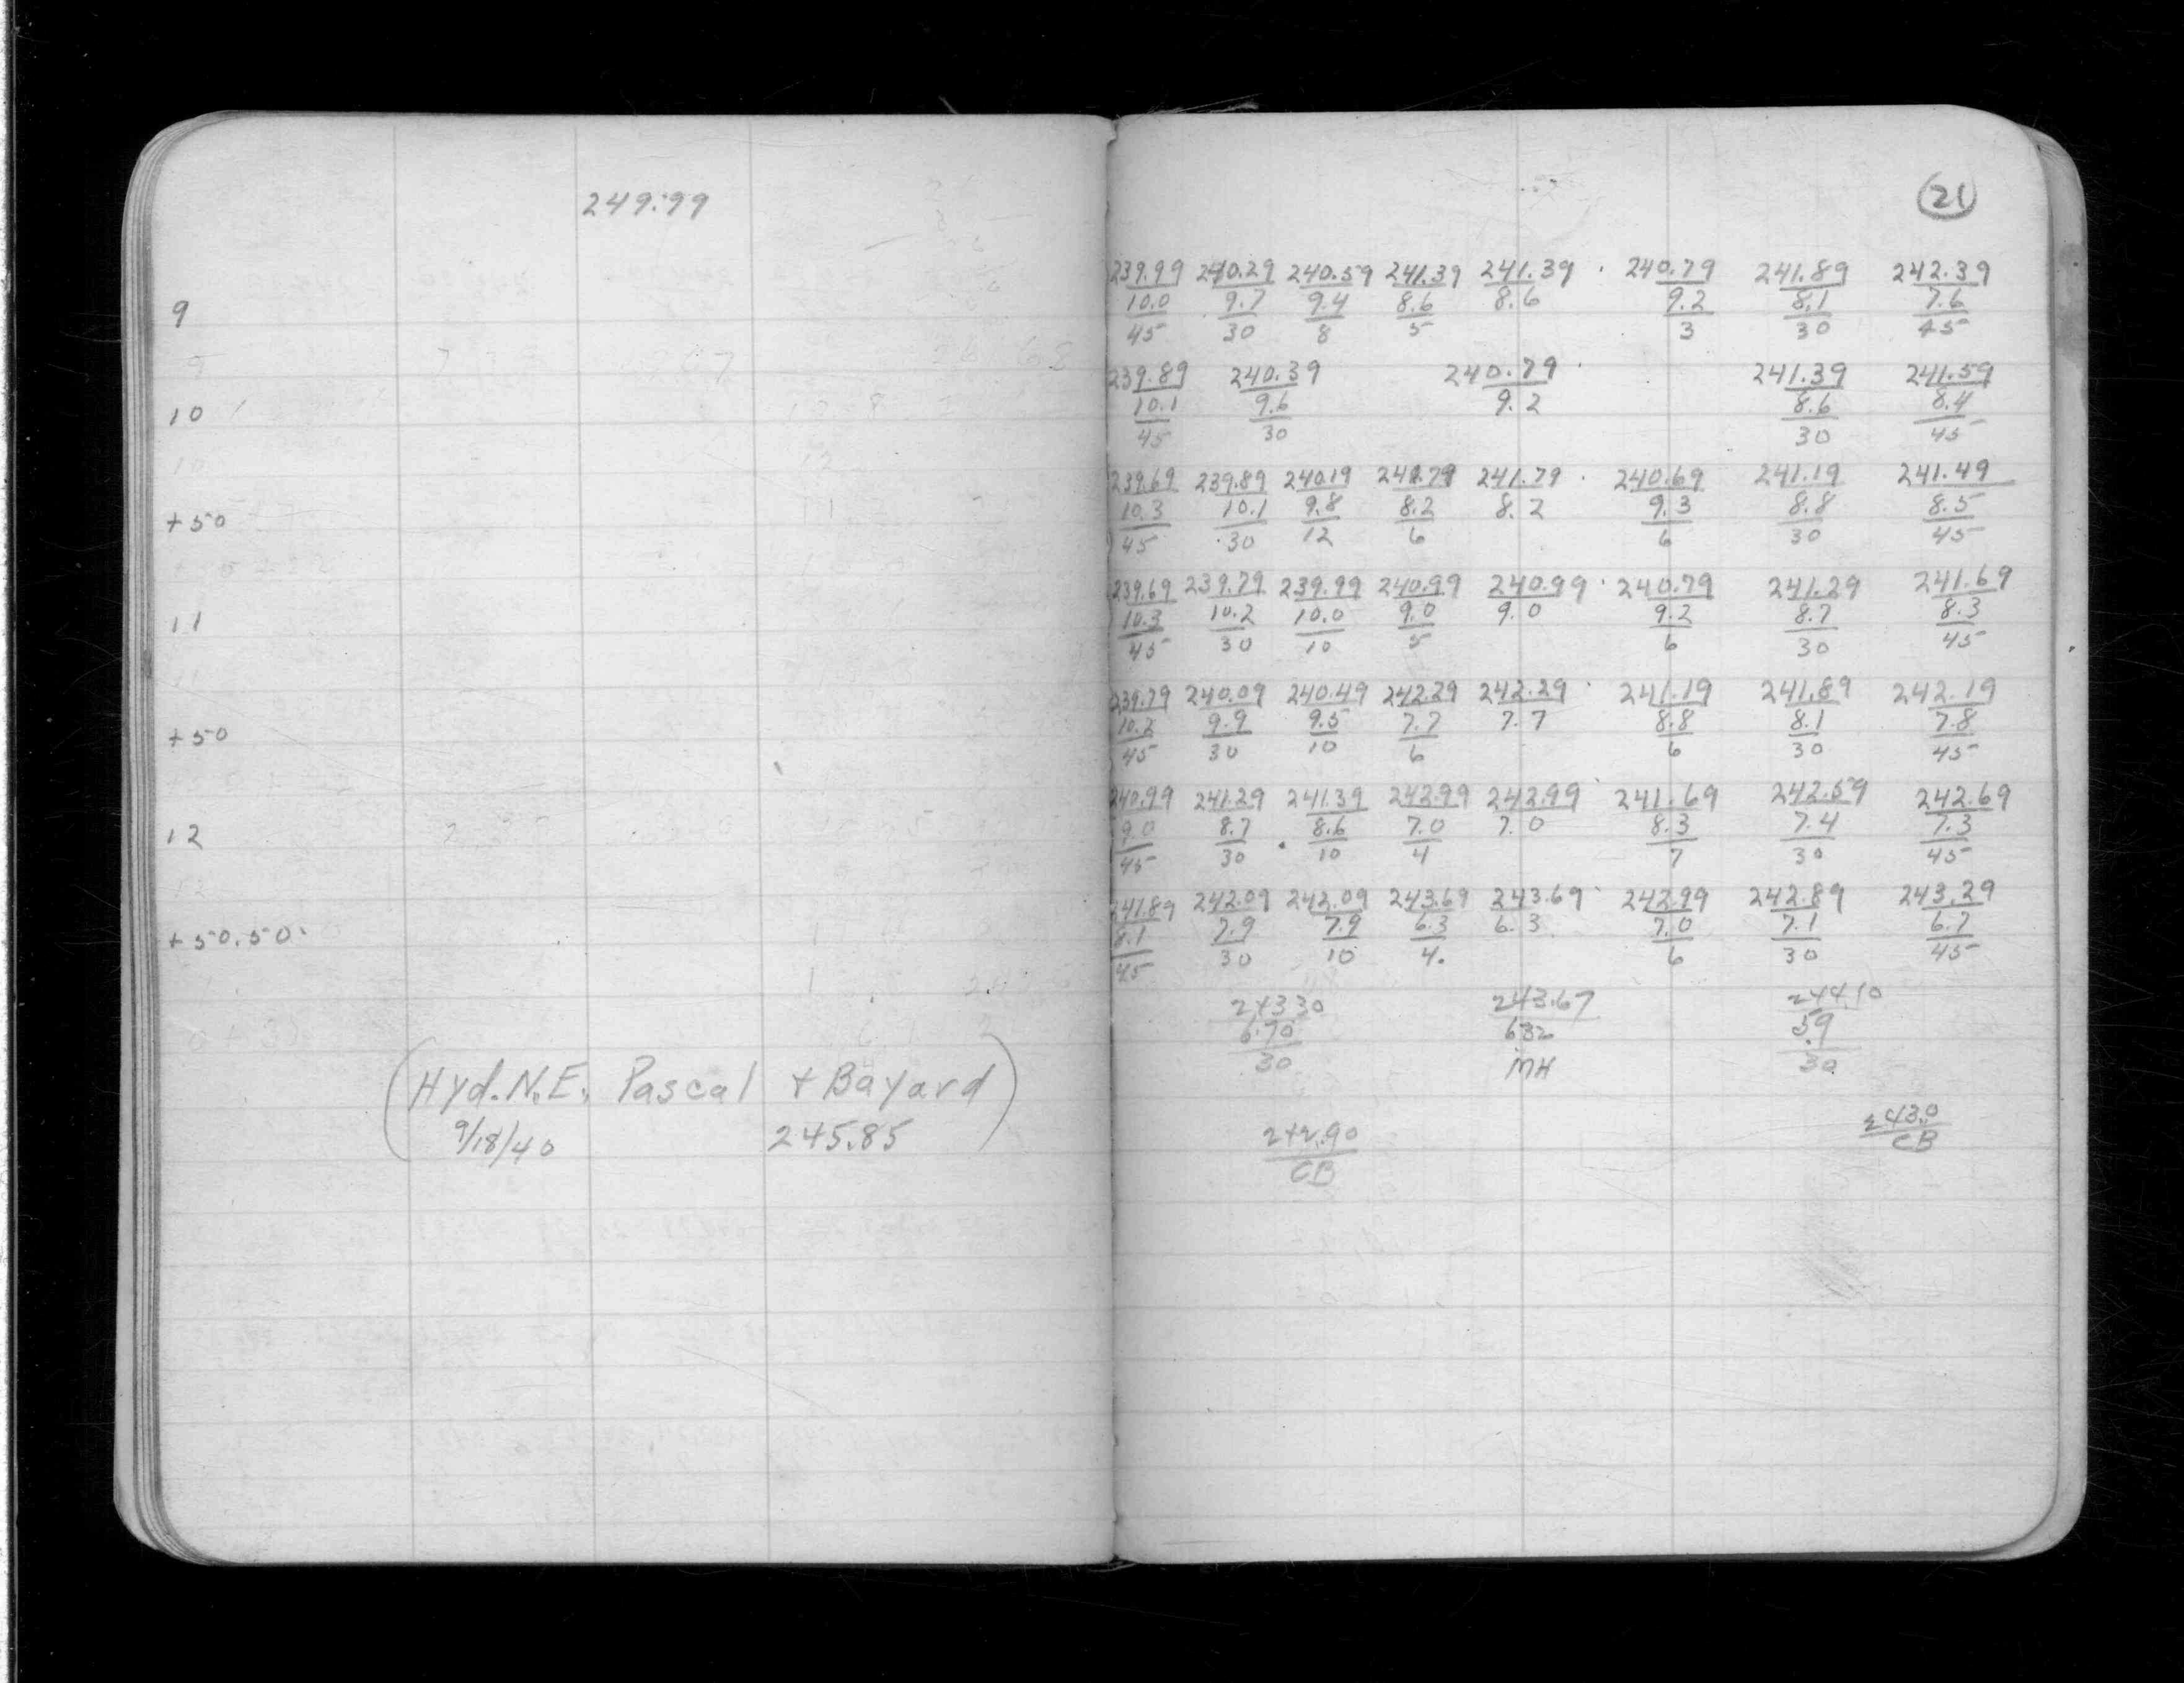 249.99
(21)
239.99 240.29 240.59 241.39 241.39 240.79 241.89 242.39
9 10.0 9.7 9.4 8.6 8.6 9.2 8.1 7.6
45 30 8 5 3 30 45
239.89 240.39 240.79 241.39 241.59
10 10.1 9.6 9.2 8.6 8.4
45 30 30 45
239.69 239.89 240.19 241.79 241.79 240.69 241.19 241.49
+50 10.3 10.1 9.8 8.2 8.2 9.3 8.8 8.5
45 30 12 6 6 30 45
239.69 239.79 239.99 240.99 240.99 240.79 241.29 241.69
11 10.3 10.2 10.0 9.0 9.0 9.2 8.7 8.3
45 30 10 5 6 30 45
239.79 240.09 240.49 242.29 242.29 241.19 241.89 242.19
+50 10.2 9.9 9.5 7.7 7.7 8.8 8.1 7.8
45 30 10 6 6 30 45
240.99 241.29 241.39 242.99 242.99 241.69 242.59 242.69
12 9.0 8.7 8.6 7.0 7.0 8.3 7.4 7.3
45 30 10 4 7 30 45
241.89 242.09 242.09 243.69 243.69 242.99 242.89 243.29
+50.50 8.1 7.9 7.9 6.3 6.3 7.0 7.1 6.7
45 30 10 4. 6 30 45
243.30 243.67 244.10
6.70 632 5.9
30 MH 30
(Hyd. N.E. Pascal + Bayard)
9/18/40 245.85
242.90 243.0
CB CB